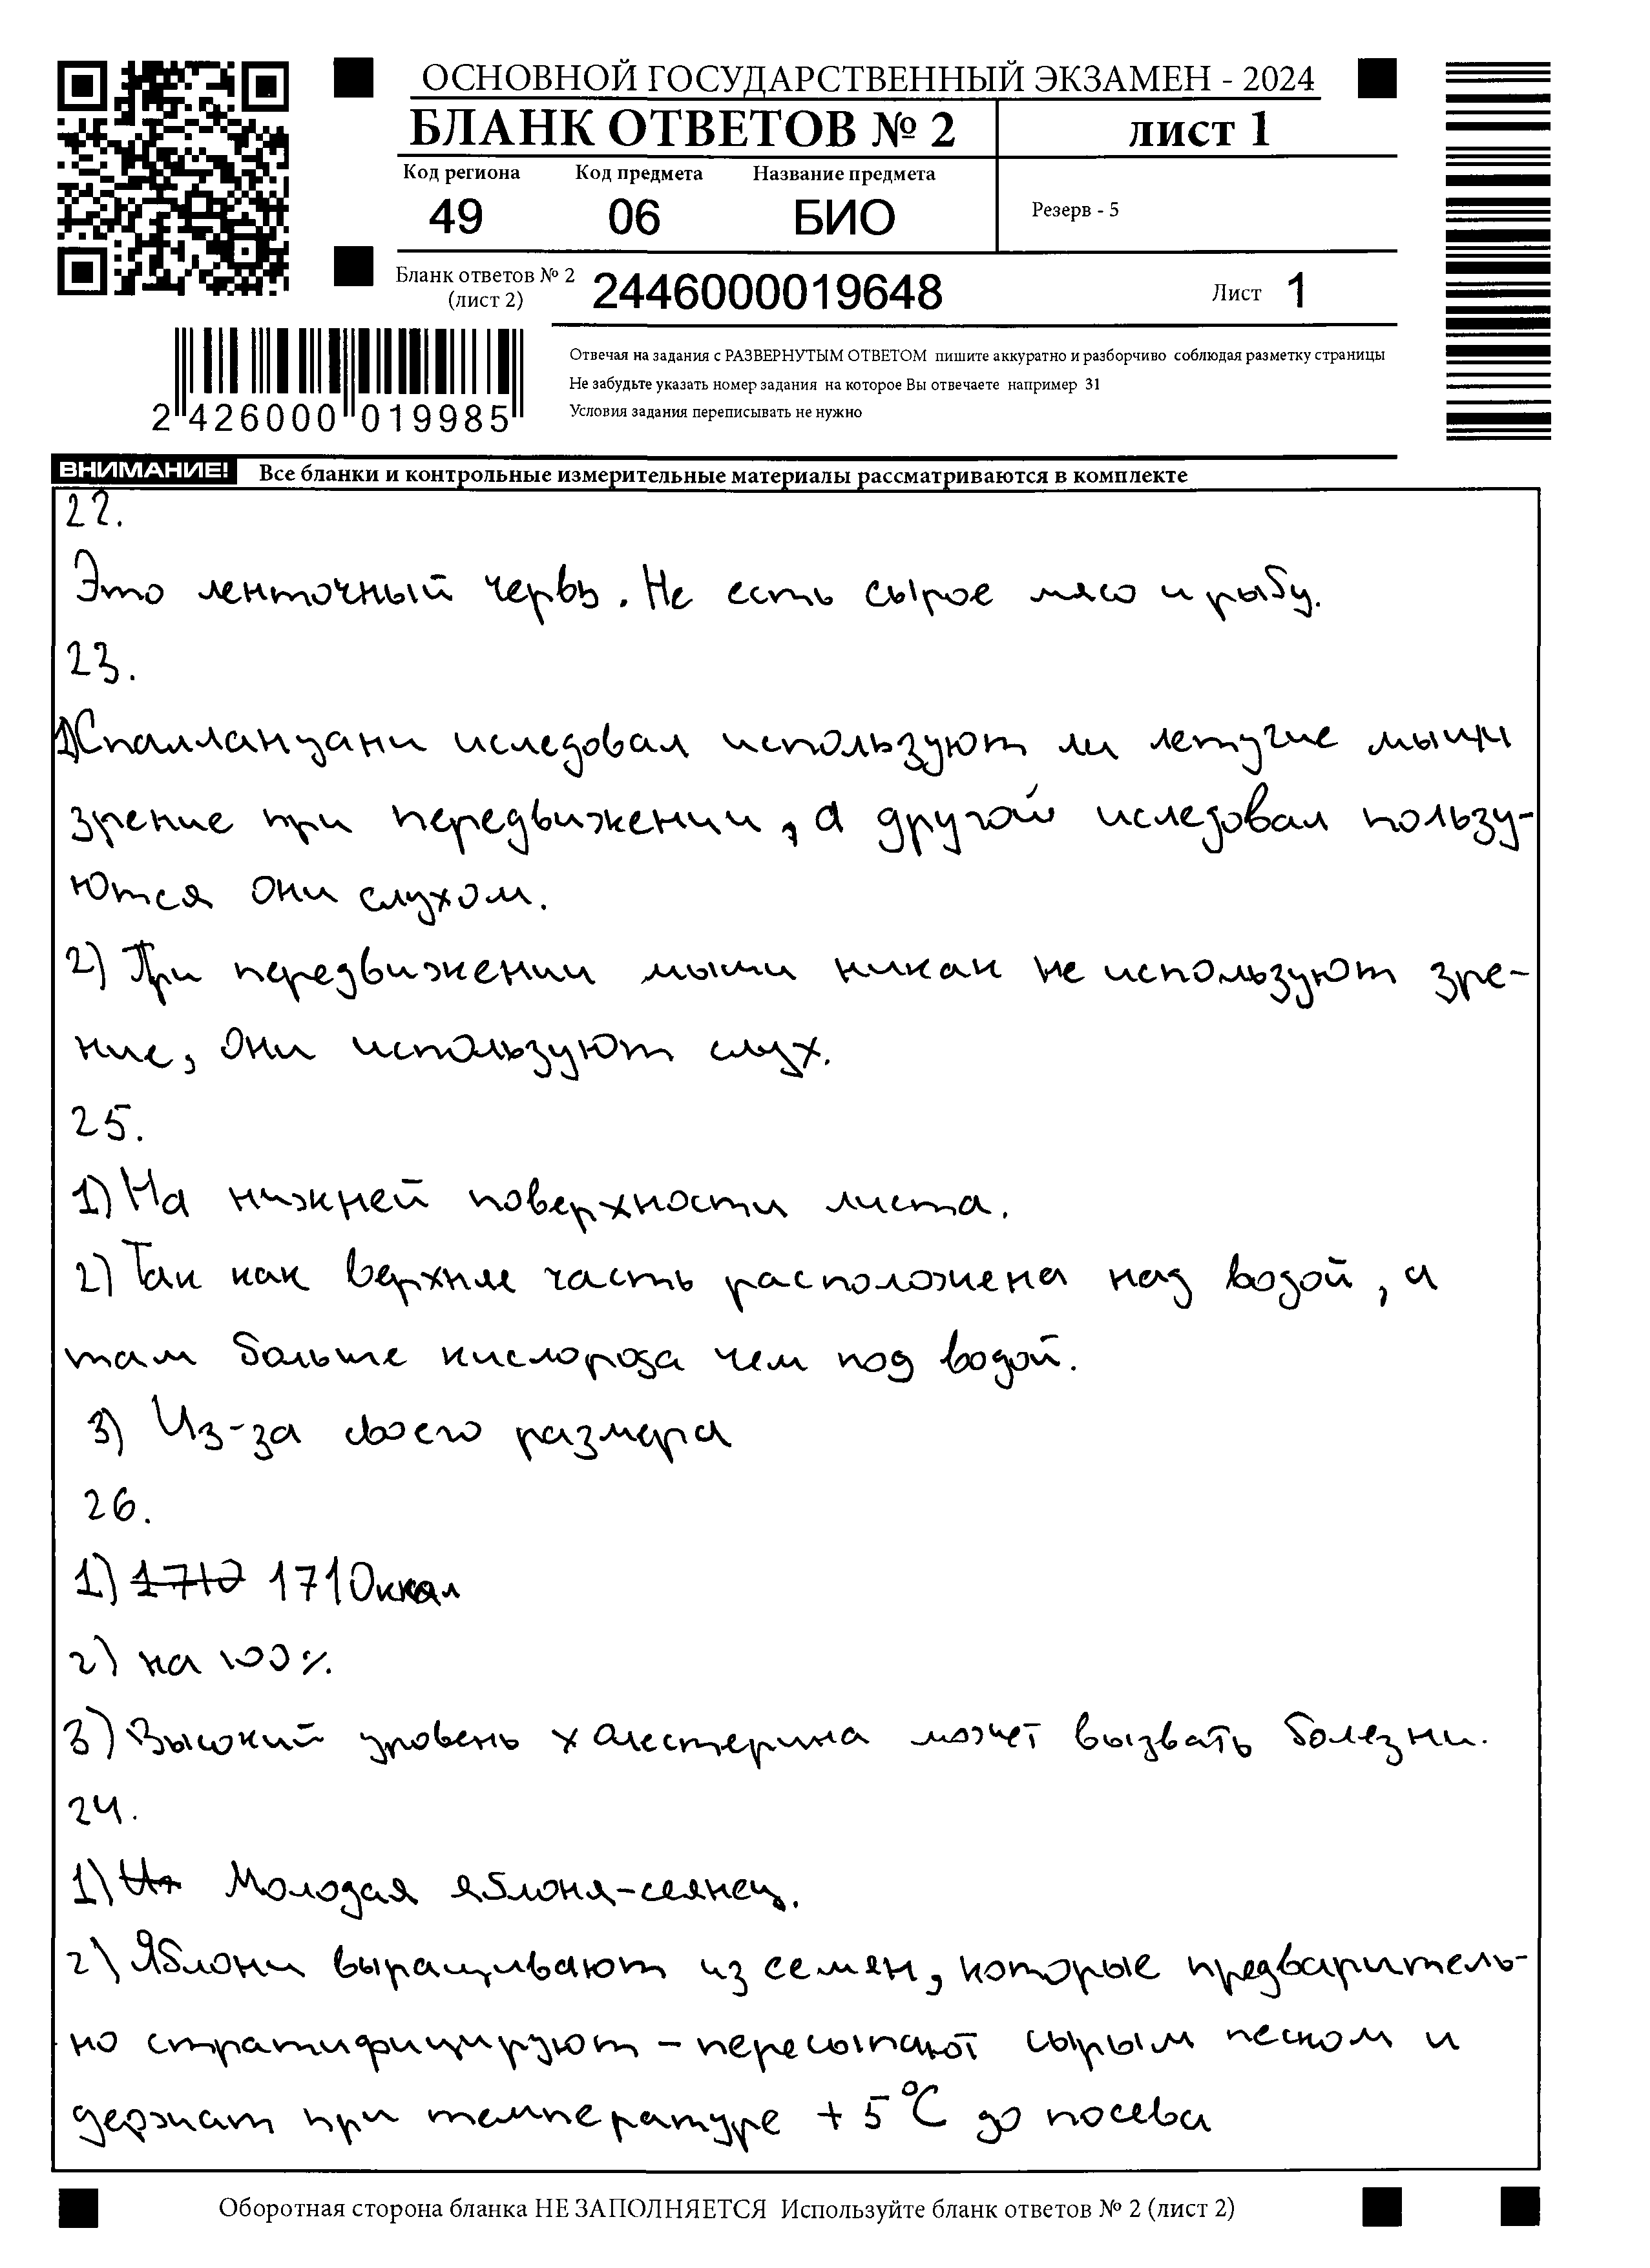 ОСНОВНОЙ ГОСУДАРСТВЕННЫЙ ЭКЗАМЕН - 2024
БЛАНК ОТВЕТОВ № 2
лист 1
Код региона Код предмета Название предмета
49 06 БИО
Резерв - 5
Бланк ответов № 2
(лист 2)
2446000019648
Лист 1
Отвечая на задания с РАЗВЕРНУТЫМ ОТВЕТОМ пишите аккуратно и разборчиво соблюдая разметку страницы
Не забудьте указать номер задания на которое Вы отвечаете например 31
Условия задания переписывать не нужно
2 426000 019985
ВНИМАНИЕ! Все бланки и контрольные измерительные материалы рассматриваются в комплекте
22.
Это ленточный червь. Не есть сырое мясо и рыбу.
23.
1) Спалланцани иследовал используют ли летучие мыши
зрение при передвижении, а другой иследовал пользу-
ются они слухом.
2) При передвижении мыши никак не используют зре-
ние, они используют слух.
25.
1) На нижней поверхности листа.
2) Так как верхние часть расположена над водой, а
там больше кислорода чем под водой.
3) Из-за своего размера
26.
1) 1710 1710ккал
2) на 100%
3) Высокий уровень халестерина может вызвать болезни.
24.
1) Молодая яблоня-сеянец.
2) Яблони выращивают из семян, которые предваритель-
но стратифицируют - пересыпают сырым песком и
держат при температуре +5°С до посева
Оборотная сторона бланка НЕ ЗАПОЛНЯЕТСЯ Используйте бланк ответов № 2 (лист 2)